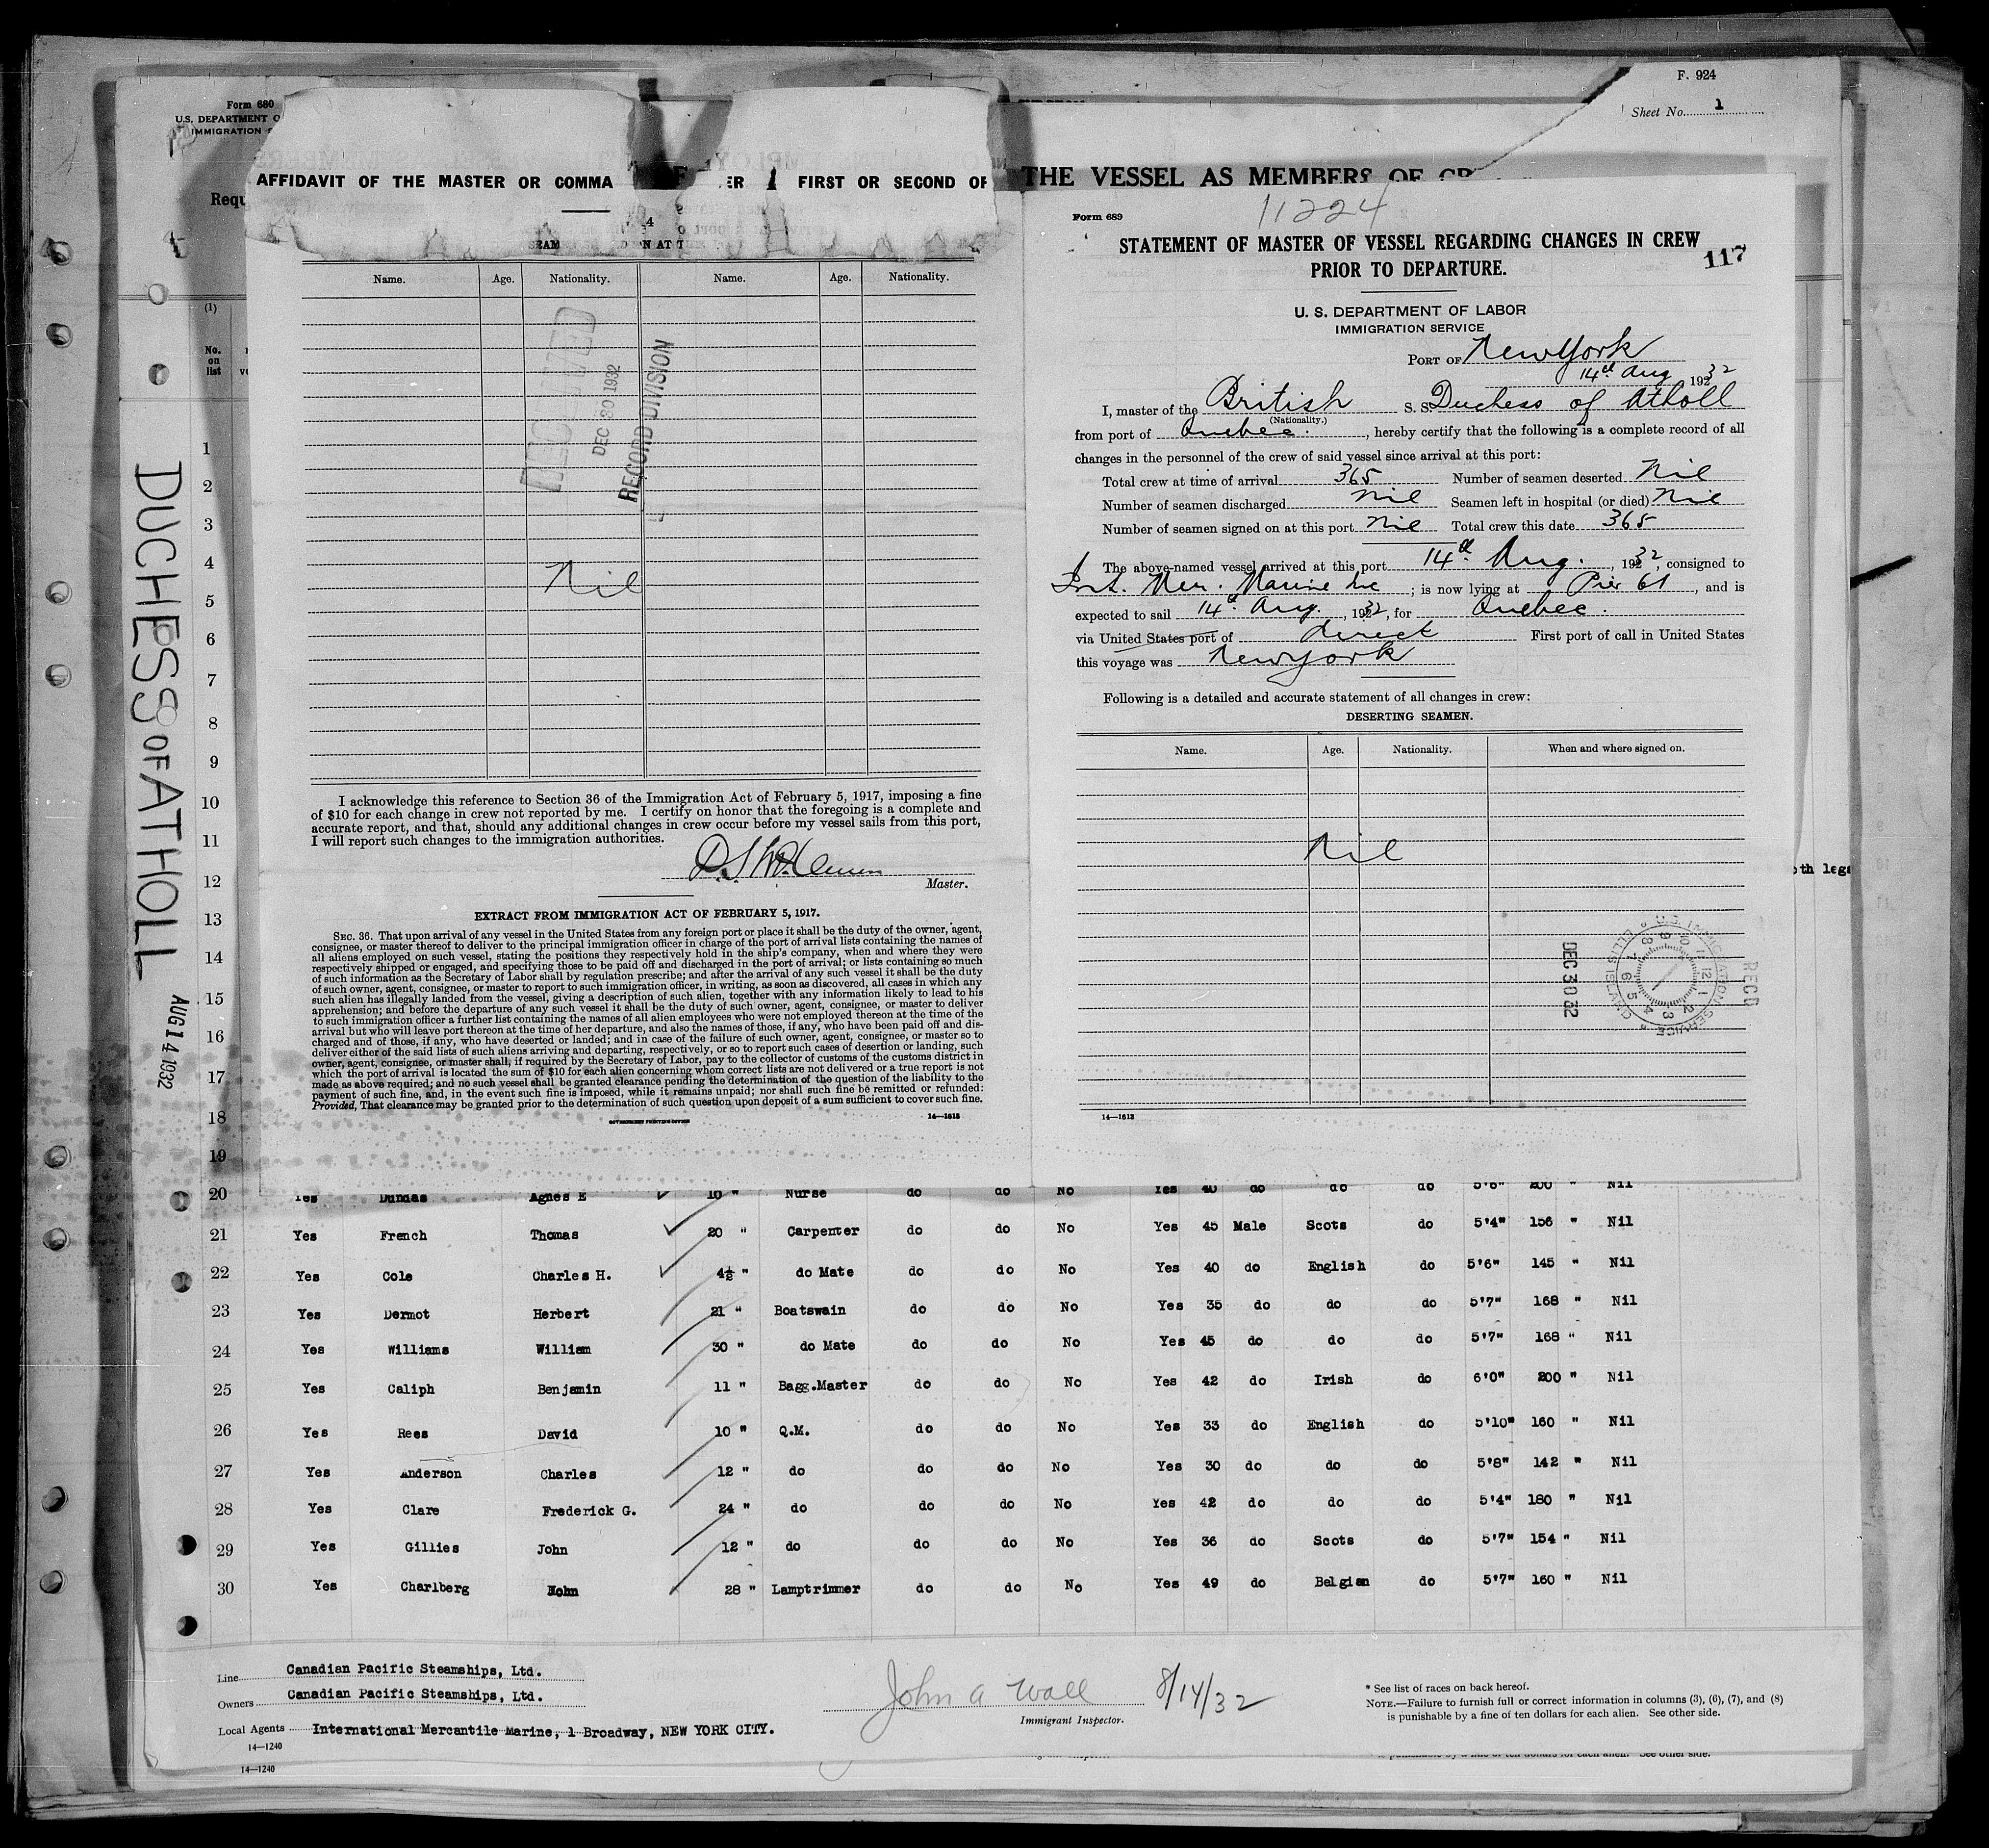 F. 924
Sheet No. 1
Form 680
U.S. DEPARTMENT O
IMMIGRATION S
THE VESSEL AS MEMBERS OF CR
Requ
AFFIDAVIT OF THE MASTER OR COMMA ER FIRST OR SECOND OF
SEAM ON AT T
Name. Age. Nationality. Name. Age. Nationality.
RECEIVED
DEC 30 1932
RECORD DIVISION
Nil
I acknowledge this reference to Section 36 of the Immigration Act of February 5, 1917, imposing a fine
of $10 for each change in crew not reported by me. I certify on honor that the foregoing is a complete and
accurate report, and that, should any additional changes in crew occur before my vessel sails from this port,
I will report such changes to the immigration authorities.
Master.
EXTRACT FROM IMMIGRATION ACT OF FEBRUARY 5, 1917.
SEC. 36. That upon arrival of any vessel in the United States from any foreign port or place it shall be the duty of the owner, agent,
consignee, or master thereof to deliver to the principal immigration officer in charge of the port of arrival lists containing the names of
all aliens employed on such vessel, stating the positions they respectively hold in the ship's company, when and where they were
respectively shipped or engaged, and specifying those to be paid off and discharged in the port of arrival; or lists containing so much
of such information as the Secretary of Labor shall by regulation prescribe; and after the arrival of any such vessel it shall be the duty
of such owner, agent, consignee, or master to report to such immigration officer, in writing, as soon as discovered, all cases in which any
such alien has illegally landed from the vessel, giving a description of such alien, together with any information likely to lead to his
apprehension; and before the departure of any such vessel it shall be the duty of such owner, agent, consignee, or master to deliver
to such immigration officer a further list containing the names of all alien employees who were not employed thereon at the time of the
arrival but who will leave port thereon at the time of her departure, and also the names of those, if any, who have been paid off and dis-
charged and of those, if any, who have deserted or landed; and in case of the failure of such owner, agent, consignee, or master so to
deliver either of the said lists of such aliens arriving and departing, respectively, or so to report such cases of desertion or landing, such
owner, agent, consignee, or master shall, if required by the Secretary of Labor, pay to the collector of customs of the customs district in
which the port of arrival is located the sum of $10 for each alien concerning whom correct lists are not delivered or a true report is not
made as above required; and no such vessel shall be granted clearance pending the determination of the question of the liability to the
payment of such fine, and, in the event such fine is imposed, while it remains unpaid; nor shall such fine be remitted or refunded:
Provided, That clearance may be granted prior to the determination of such question upon deposit of a sum sufficient to cover such fine.
GOVERNMENT PRINTING OFFICE 14—1613
Form 689
11224
STATEMENT OF MASTER OF VESSEL REGARDING CHANGES IN CREW
PRIOR TO DEPARTURE.
117
U. S. DEPARTMENT OF LABOR
IMMIGRATION SERVICE
PORT OF New York
14th Aug 1932
I, master of the British S. S. Duchess of Atholl
(Nationality.)
from port of Quebec. , hereby certify that the following is a complete record of all
changes in the personnel of the crew of said vessel since arrival at this port:
Total crew at time of arrival 365 Number of seamen deserted Nil
Number of seamen discharged Nil Seamen left in hospital (or died) Nil
Number of seamen signed on at this port Nil Total crew this date 365
The above-named vessel arrived at this port 14th Aug. , 1932, consigned to
Int. Mer. Marine Inc ; is now lying at Pier 61 , and is
expected to sail 14th Aug. , 1932, for Quebec.
via United States port of direct First port of call in United States
this voyage was New York
Following is a detailed and accurate statement of all changes in crew:
DESERTING SEAMEN.
Name. Age. Nationality. When and where signed on.
Nil
U.S. IMMIGRATION SERVICE
ELLIS ISLAND
REC'D
DEC 30 32
14—1613
oth legs
DUCHESS OF ATHOLL
AUG 14 1932
(1)
No. on list
1
2
3
4
5
6
7
8
9
10
11
12
13
14
15
16
17
18
19
20 Yes Dumas Agnes E 10 " Nurse do do No Yes 40 do do do 5'6" 200 " Nil
21 Yes French Thomas 20 " Carpenter do do No Yes 45 Male Scots do 5'4" 156 " Nil
22 Yes Cole Charles H. 4½ " do Mate do do No Yes 40 do English do 5'6" 145 " Nil
23 Yes Dermot Herbert 21 " Boatswain do do No Yes 35 do do do 5'7" 168 " Nil
24 Yes Williams William 30 " do Mate do do No Yes 45 do do do 5'7" 168 " Nil
25 Yes Caliph Benjamin 11 " Bagg.Master do do No Yes 42 do Irish do 6'0" 200 " Nil
26 Yes Rees David 10 " Q.M. do do No Yes 33 do English do 5'10" 160 " Nil
27 Yes Anderson Charles 12 " do do do No Yes 30 do do do 5'8" 142 " Nil
28 Yes Clare Frederick G. 24 " do do do No Yes 42 do do do 5'4" 180 " Nil
29 Yes Gillies John 12 " do do do No Yes 36 do Scots do 5'7" 154 " Nil
30 Yes Charlberg John 28 " Lamptrimmer do do No Yes 49 do Belgian do 5'7" 160 " Nil
Line Canadian Pacific Steamships, Ltd.
Owners Canadian Pacific Steamships, Ltd.
Local Agents International Mercantile Marine, 1 Broadway, NEW YORK CITY.
14—1240
John A Wall 8/14/32
Immigrant Inspector.
* See list of races on back hereof.
NOTE.—Failure to furnish full or correct information in columns (3), (6), (7), and (8)
is punishable by a fine of ten dollars for each alien. See other side.
14—1240